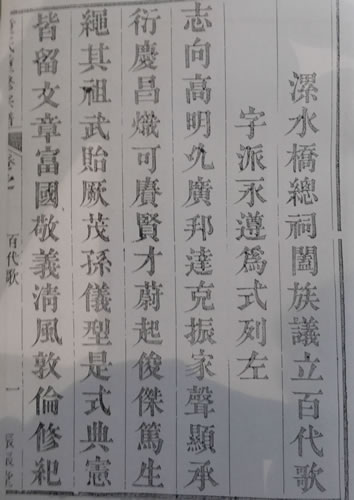 漯水橋總祠闔族議立百代歌
字派永遵爲式列左
志向高明允廣邦達克振家聲顯承
衍慶昌熾可賡賢才蔚起俊傑篤生
繩其祖武貽厥茂孫儀型是式典憲
皆留文章富國敬義清風敦倫修紀
百代歌
一